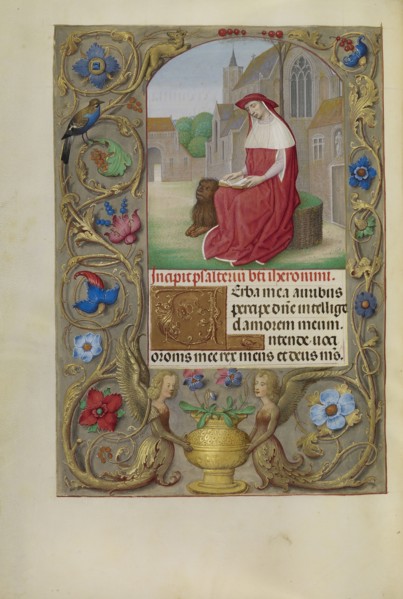 Incipit psalteriū bti iheronimi.
VErba mea auribus
percipe dn̄e intellige
clamorem meum.
Intende uoci
orōnis mee rex meus et deus m̄s.